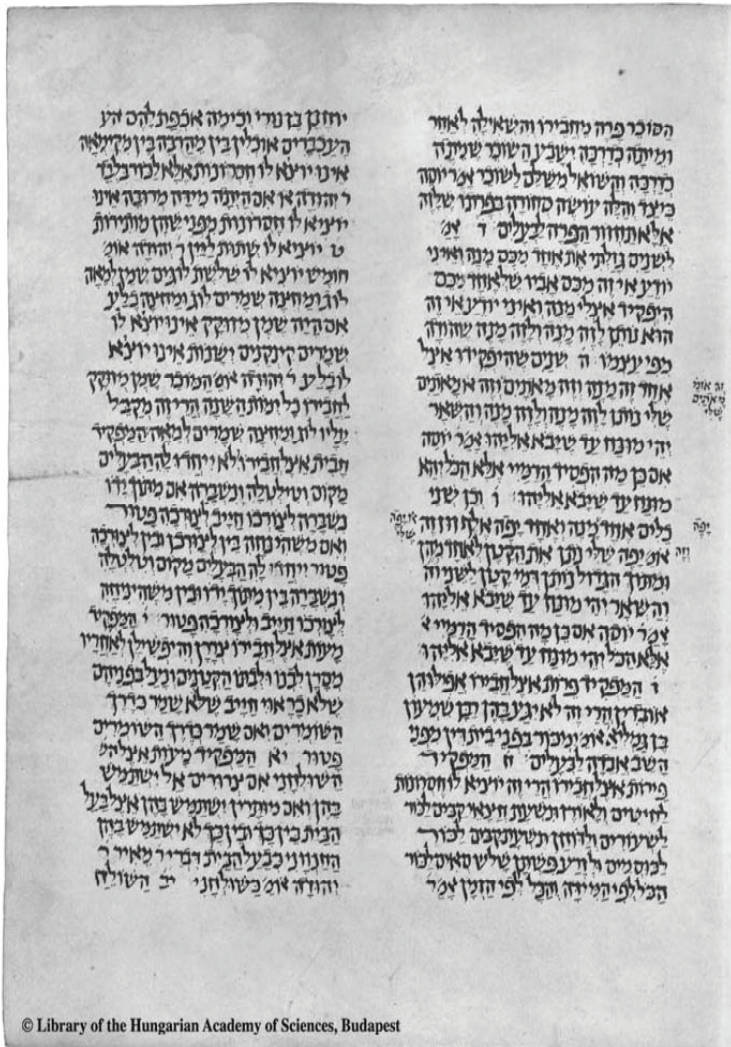 הסוכר פרה מחבירו והשאילה לאחר
ומיתה כדרכה ישבע השוכר שמיתה
כדרכה והשואל משלם לשוכר אמר יוסה
כיצד הלה עושה סחורה בפרתו שלזה
אלא תחזור הפרה לבעלים ד אמ'
לשנים גזלתי את אחד מכם מנה ואיני
יודע אי זה מכם אביו שלאחד מכם
היפקיד אצלי מנה ואיני יודע אי זה
הוא נותן לזה מנה ולזה מנה שהודה
מפי עצמו ה שנים שהיפקידו אצל
אחד זה מנה וזה מאתים וזה אמ מאתים
שלי נותן לזה מנה ולזה מנה והשאר
יהי מונח עד שיבא אליהו אמר יוסה
אם כן מה הפסיד הרמיי אלא הכל יהא
מונח עד שיבא אליהו ו וכן שני
כלים אחד מנה ואחד יפה אלף זוז זה
אומ' יפה שלי נותן את הקטן לאחד מהן
ומתוך הגדול נותן דמי קטן לשני וזה
והשאר יהי מונח עד שיבא אליהו
אמר יוסה אם כן מה הפסיד הרמיי
אלא הכל יהי מונח עד שיבא אליהו
ז המפקיד פרות אצל חבירו אפילו הן
אובדין הרי זה לא יגע בהן רבן שמעון
בן גמליא' אומ' ימכור בפני בית דין מפני
השב אבדה לבעלים ח המפקיד
פירות אצל חבירו הרי זה יוציא לו חסרונות
לחיטים ולאורז תשעת חיצאי קבים לכור
לשעורים ולדוחן תשעת קבים לכור
לכוסמים ולזרע פשתן שלש סאים לכור
הכל לפי המידה והכל לפי הזמן אמר
זה אומ'
מאתים
שלי
יפה
וזה
או' יפה
שלי
יוחנן בן נורי וכימה אכפת להם
העכברים אוכלין בין מהרבה בין מקימאה
אינו יוצא לו חסרונות אלא לכור בלבד
ר יהודה או אם היתה מידה מרובה אינו
יוציא לו חסרונות מפני שהן מותירות
ט יוציא לו שתות ליין ר יהודה אומ'
חומיש יוציא לו שלשת לוגים שמן למאה
לוג ומחצה שמרים לוג ומחצה בלע
אם היה שמן מזוקק אינו יוצא לו
שמרים קינקנים ישנות אינו יוצא
לו בלע ר' יהודה אומ' המוכר שמן מזוקק
לחבירו כל ימות השנה הרי זה מקבל
עליו לוג ומחצה שמרים למאה המפקיד
חבית אצל חבירו ולא ייחדו לה הבעלים
מקום וטילטלה ונשברה אם מתוך ידו
נשברה לצורכו חייב לצורכה פטור
ואם משהינחה בין לצורכו ובין לצורכה
פטור ייחדו לה הבעלים מקום וטלטלה
ונשברה בין מתוך ידו ובין משהיניחה
לצורכו חייב ולצורכה פטור י המפקיד
מעות אצל חבירו צררן והיפשילן לאחריו
מסרן לבנו ולבתו הקטנים ונעל בפניהם
שלא כראוי חייב שלא שמר כדרך
השומרים ואם שמר כדרך השומרים
פטור יא המפקיד מעות אצל
השולחני אם צרורים אל ישתמש
בהן ואם מותרין ישתמש בהן אצל בעל
הבית בין כך ובין כך לא ישתמש בהן
החנווני כבעל הבית דברי ר מאיר ר
יהודה אומ' כשולחני יב השולח